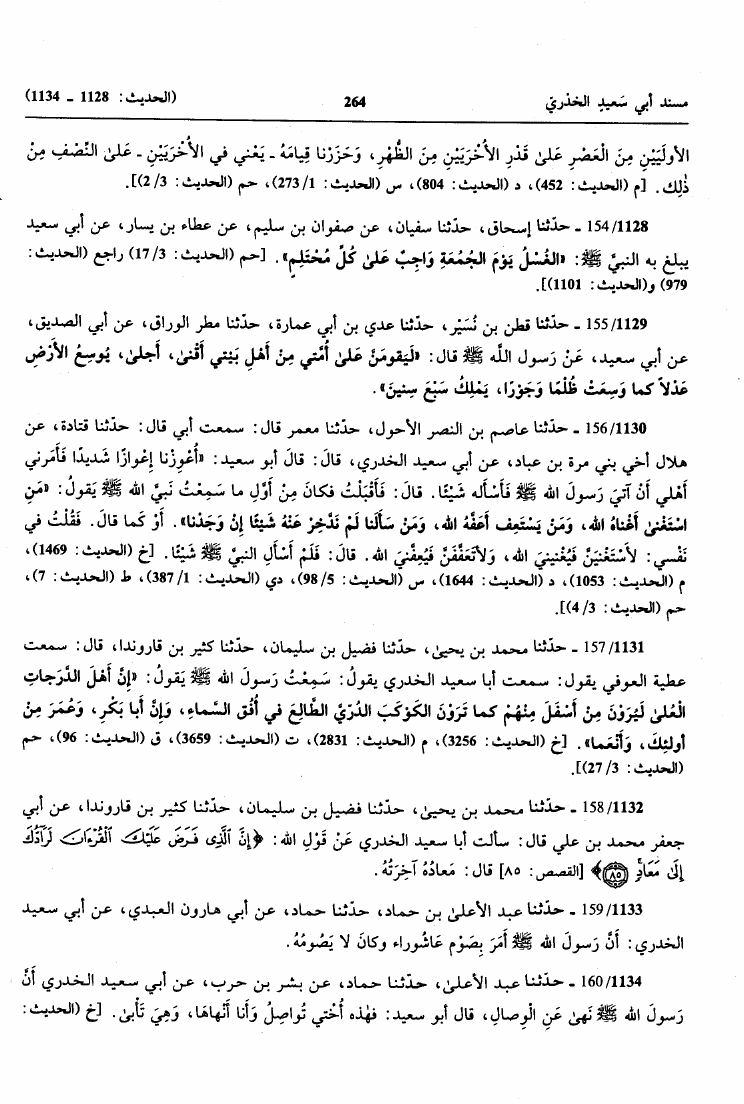 مسند أبي سَعيدٍ الخدريّ 264 (الحديث: 1128 ـ 1134)
الأولَيَيْنِ مِنَ الْعَصْرِ عَلىٰ قَدْرِ الأُخْرَيَيْنِ مِنَ الظُّهْرِ، وَحَزَرْنا قِيامَهُ ـ يَعْني في الأُخْرَيَيْنِ ـ عَلىٰ النِّصْفِ مِنْ
ذٰلِكَ. [م (الحديث: 452)، د (الحديث: 804)، س (الحديث: 1/ 273)، حم (الحديث: 3/ 2)].
154/1128 ـ حدّثنا إسحاق، حدّثنا سفيان، عن صفوان بن سليم، عن عطاء بن يسار، عن أبي سعيد
يبلغ به النبيَّ ﷺ: «الغُسْلُ يَوْمَ الجُمُعَةِ وَاجِبٌ عَلىٰ كُلِّ مُحْتَلِمٍ». [حم (الحديث: 3/ 17) راجع (الحديث:
979) و(الحديث: 1101)].
155/1129 ـ حدّثنا قطن بن نُسَيْر، حدّثنا عدي بن أبي عمارة، حدّثنا مطر الوراق، عن أبي الصديق،
عن أبي سعيد، عَنْ رَسول اللَّه ﷺ قال: «لَيَقومَنَّ عَلىٰ أُمَّتي مِنْ أَهْلِ بَيْتي أَقْنىٰ، أَجلىٰ، يُوسِعُ الأَرْضَ
عَدْلاً كما وَسِعَتْ ظُلْمًا وَجَوْرًا، يَمْلِكُ سَبْعَ سِنِينَ».
156/1130 ـ حدّثنا عاصم بن النصر الأحول، حدّثنا معمر قال: سمعت أبي قال: حدّثنا قتادة، عن
هلال أخي بني مرة بن عباد، عن أبي سعيد الخدري، قالَ: قالَ أبو سعيد: «أُعْوِزْنا إعْوازًا شَديدًا فَأَمَرَني
أَهْلي أَنْ آتيَ رَسولَ الله ﷺ فَأَسأله شَيْئًا. قالَ: فَأَقْبَلْتُ فكانَ مِنْ أَوَّلِ ما سَمِعْتُ نَبيَّ الله ﷺ يَقولُ: «مَنِ
اسْتَغْنىٰ أَغْناهُ الله، وَمَنْ يَسْتَعِف أَعَفَّهُ الله، وَمَنْ سَأَلَنا لَمْ نَدَّخِرْ عَنْهُ شَيْئًا إنْ وَجَدْنا». أَوْ كَما قالَ. فَقُلْتُ في
نَفْسي: لأَسْتَغْنِيَنَّ فَيُغْنِينيَ الله، وَلأَتَعَفَّفَنَّ فَيُعِفُّنيَ الله. قالَ: فَلَمْ أَسْأَلِ النبيَّ ﷺ شَيْئًا. [خ (الحديث: 1469)،
م (الحديث: 1053)، د (الحديث: 1644)، س (الحديث: 5/ 98)، دي (الحديث: 1/ 387)، ط (الحديث: 7)،
حم (الحديث: 3/ 4)].
157/1131 ـ حدّثنا محمد بن يحيىٰ، حدّثنا فضيل بن سليمان، حدّثنا كثير بن قاروندا، قال: سمعت
عطية العوفي يقول: سمعت أبا سعيد الخدري يقولُ: سَمِعْتُ رَسولَ الله ﷺ يَقولُ: «إنَّ أَهْلَ الدَّرَجاتِ
الْعُلىٰ لَيَرَوْنَ مِنْ أَسْفَلَ مِنْهُمْ كما تَرَوْنَ الكَوْكَبَ الدُّرِّيَّ الطَّالِعَ في أُفُقِ السَّماءِ، وَإنَّ أَبا بَكْرٍ، وَعُمَرَ مِنْ
أولئِكَ، وَأَنْعَما». [خ (الحديث: 3256)، م (الحديث: 2831)، ت (الحديث: 3659)، ق (الحديث: 96)، حم
(الحديث: 3/ 27)].
158/1132 ـ حدّثنا محمد بن يحيىٰ، حدّثنا فضيل بن سليمان، حدّثنا كثير بن قاروندا، عن أبي
جعفر محمد بن علي قال: سألت أبا سعيد الخدري عَنْ قَوْلِ الله: ﴿إِنَّ ٱلَّذِى فَرَضَ عَلَيْكَ ٱلْقُرْءَانَ لَرَآدُّكَ
إِلَىٰ مَعَادٍ ۝٨٥﴾ [القصص: ٨٥] قال: مَعادُهُ آخِرَتُهُ.
159/1133 ـ حدّثنا عبد الأعلىٰ بن حماد، حدّثنا حماد، عن أبي هارون العبدي، عن أبي سعيد
الخدري: أَنَّ رَسولَ الله ﷺ أَمَرَ بِصَوْمِ عَاشُوراء وَكانَ لا يَصُومُهُ.
160/1134 ـ حدّثنا عبد الأعلىٰ، حدّثنا حماد، عن بشر بن حرب، عن أبي سعيد الخدري أَنَّ
رَسولَ الله ﷺ نَهىٰ عَنِ الْوِصالِ، قال أبو سعيد: فهٰذه أُخْتي تُواصِلُ وَأَنا أَنْهاهَا، وَهِيَ تَأْبىٰ. [خ (الحديث: